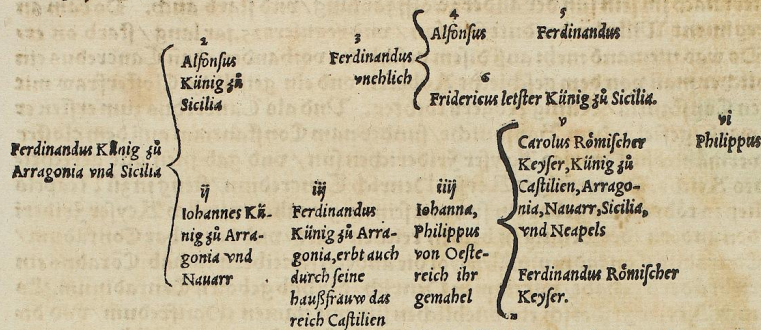 Ferdinandus Künig zů
Arragonia vnd Sicilia
2
Alfonsus
Künig zů
Sicilia
3
Ferdinandus
vnehlich
4
Alfonsus
5
Ferdinandus
6
Fridericus letster Künig zů Sicilia.
ij
Iohannes Kü-
nig zů Arra-
gonia vnd
Nauarr
iij
Ferdinandus
Künig zů Arra-
gonia, erbt auch
durch seine
haußfrauw das
reich Castilien
iiij
Iohanna,
Philippus
von Oeste-
reich ihr
gemahel
v
Carolus Römischer
Keyser, Künig zů
Castilien, Arrago-
nia, Nauarr, Sicilia,
vnd Neapels
Ferdinandus Römischer
Keyser.
vi
Philippus